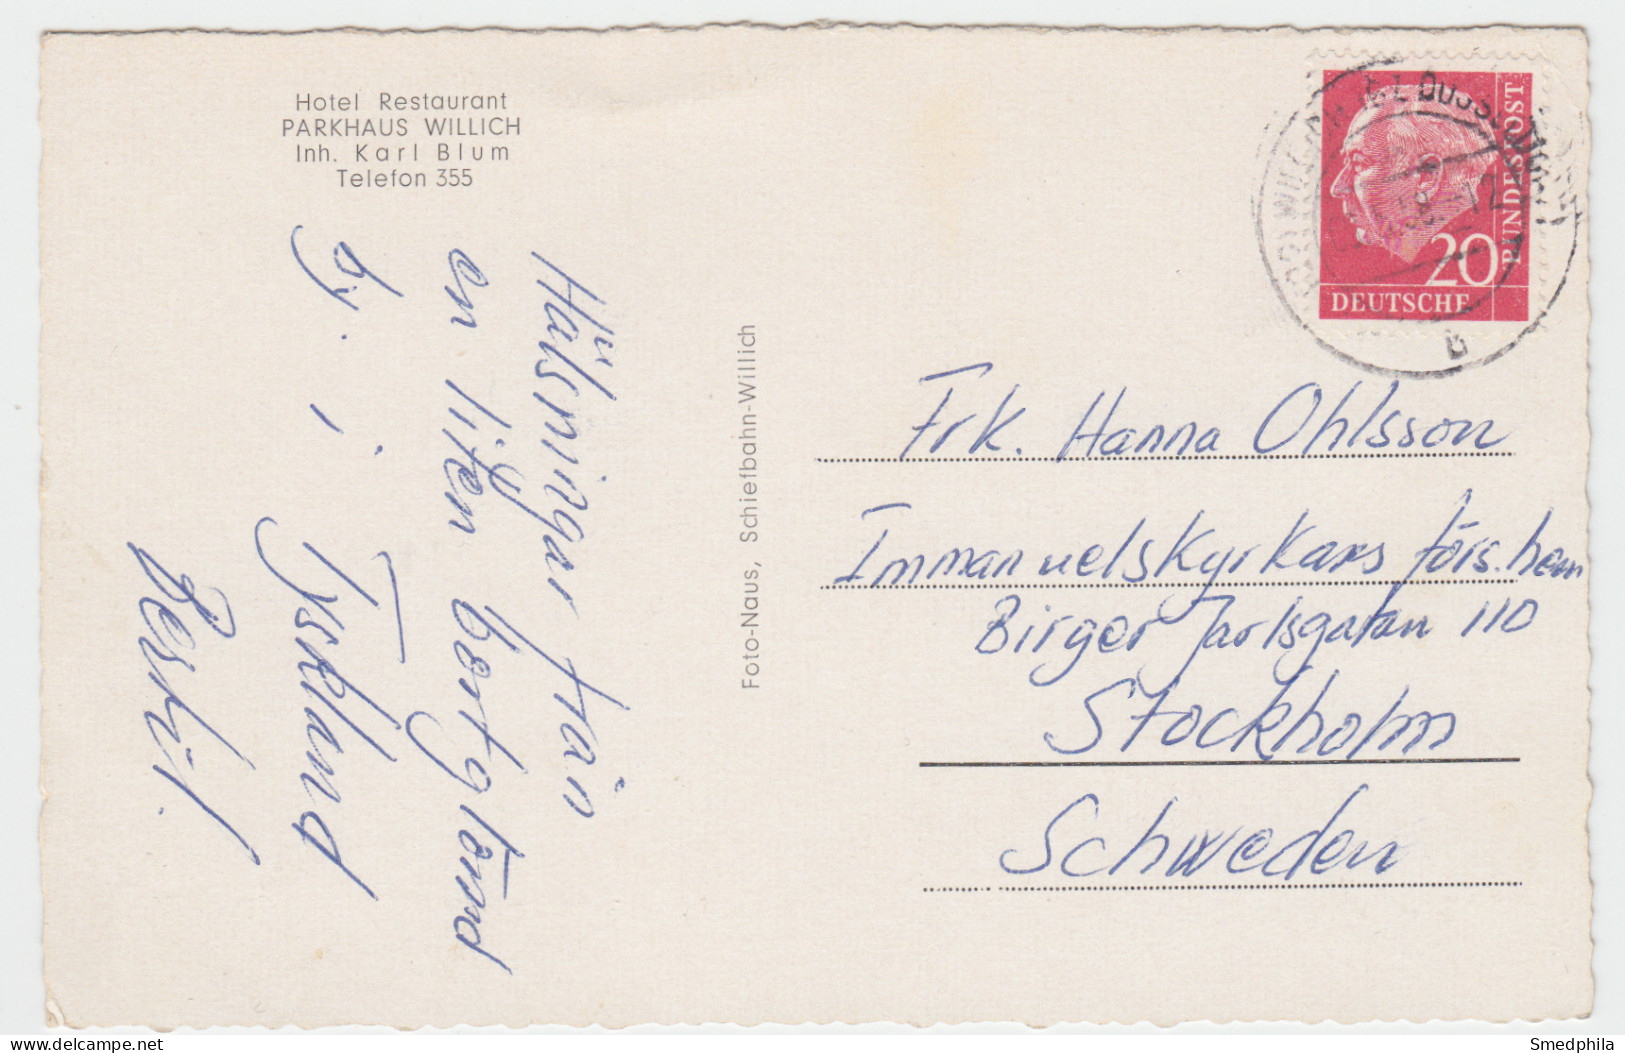 Hotel Restaurant
PARKHAUS WILLICH
Inh. Karl Blum
Telefon 355
Hälsningar från
en liten bortglömd
by i
Tyskland
Foto-Naus, Schiefbahn-Willich
BUNDESPOST
20
DEUTSCHE
b
Frk. Hanna Ohlsson
Immanuelskyrkans förs. hem
Birger Jarlsgatan 110
Stockholm
Schweden
Smedphila